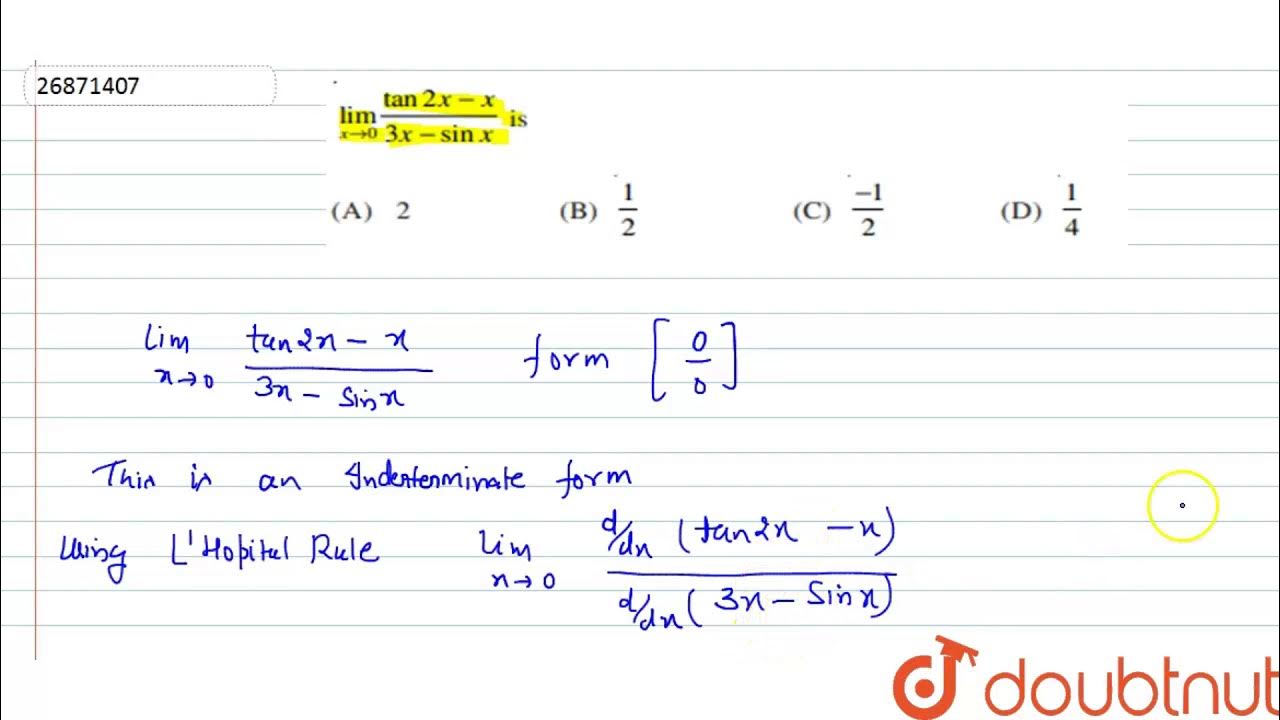 26871407
lim x→0 (tan 2x − x)/(3x − sin x) is
(A) 2 (B) 1/2 (C) −1/2 (D) 1/4
Lim x→0 (tan2x − x)/(3x − sinx) form [0/0]
This is an Indeterminate form
Using L'Hopital Rule Lim x→0 (d/dx (tan2x − x))/(d/dx (3x − sinx))
doubtnut